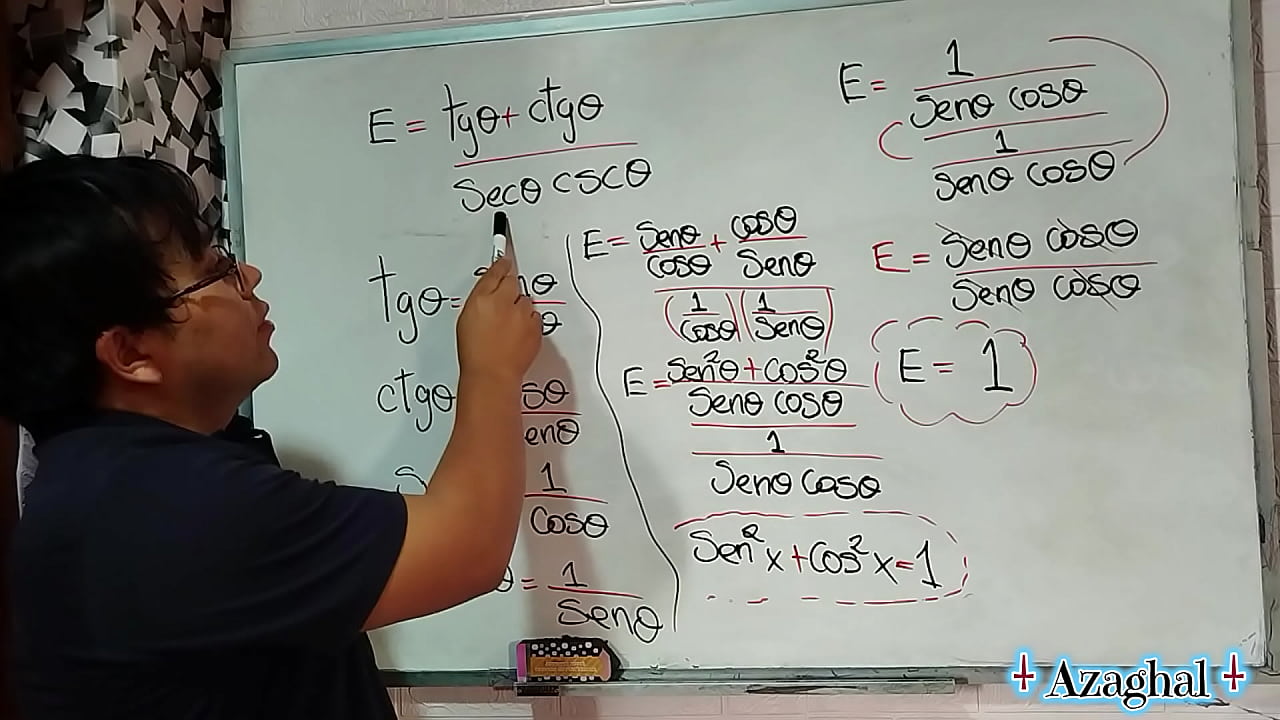 E = tgθ + ctgθ
secθ cscθ
tgθ =
ctgθ
1
Cosθ
= 1
Senθ
E = Senθ + Cosθ
Cosθ Senθ
(1)(1)
Cosθ Senθ
E = Sen²θ + Cos²θ
Senθ Cosθ
1
Senθ Cosθ
Sen²x + Cos²x = 1
E = 1
Senθ Cosθ
1
Senθ Cosθ
E = Senθ Cosθ
Senθ Cosθ
E = 1
Azaghal